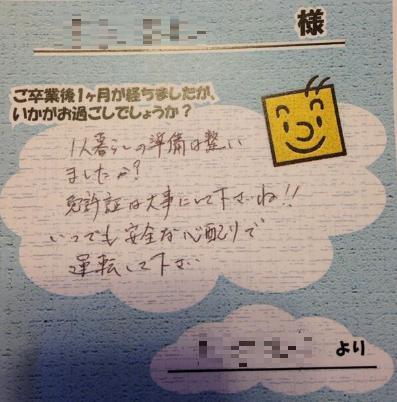 様
ご卒業後1ヶ月が経ちましたが、
いかがお過ごしでしょうか？
1人暮らしの準備は整い
ましたか？
免許証は大事にして下さいね!!
いつでも安全な心配りで
運転して下さい
より